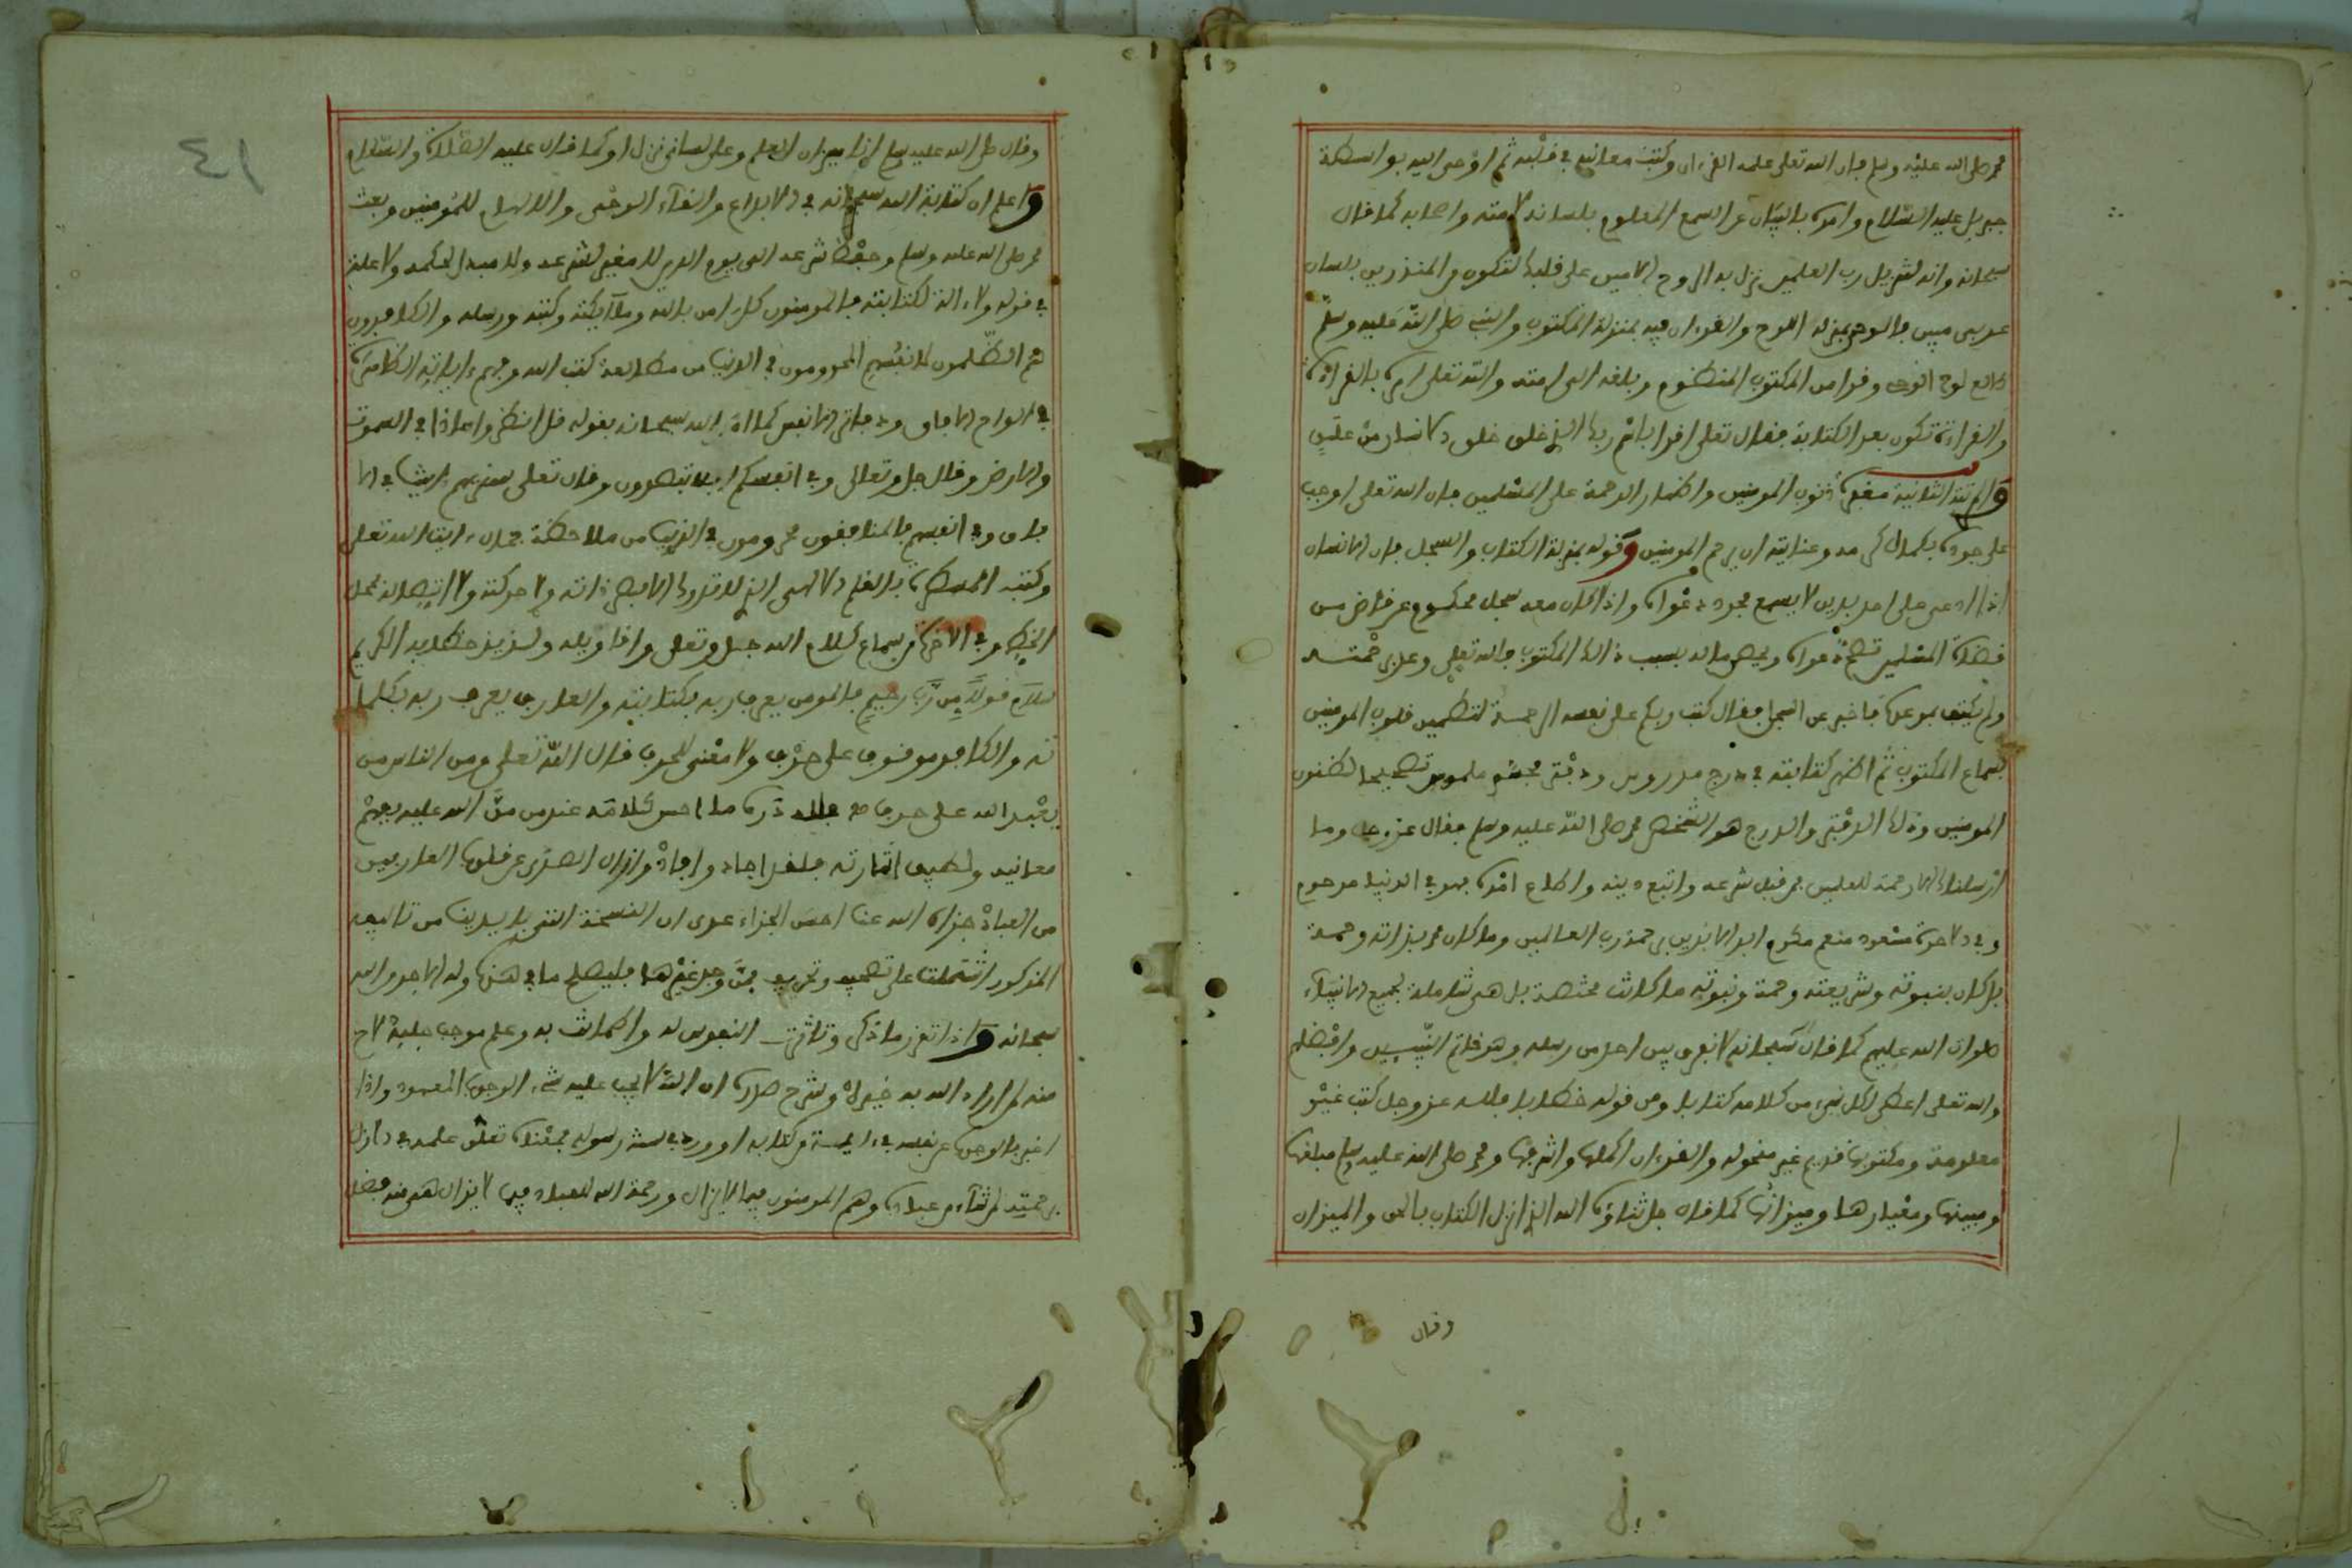 محمد صلى الله عليه وسلم فإن الله تعلى علمه القرءان وكتب معانيه في قلبه ثم أوحى إليه بواسطة
جبريل عليه السلام وأمره بالبيان عن السمع المعلوم بلسانه لأمته وأصحابه كما قال
سبحانه وإنه لتنزيل رب العلمين نزل به الروح الأمين على قلبك لتكون من المنذرين بلسان
عربي مبين فالوحي بمنزلة اللوح والقرءان فيه بمنزلة المكتوب والنبي صلى الله عليه وسلم
طالع لوح الوحي وقرأ من المكتوب المنظوم وبلغه إلى أمته والله تعلى أمره بالقراءة
والقراءة تكون بعد الكتابة فقال تعلى اقرأ باسم ربك الذي خلق خلق الانسان من علق
والمرتبة الثانية مغفرة ذنوب المومنين وإظهار الرحمة على المسلمين فإن الله تعلى أوجب
على جوده بكمال كرمه وعنايته أن يرحم المومنين وقوله بمنزلة الكتاب والسجل فإن الإنسان
إذا ادعى على أحد بدين لا يسمع مجرد دعواه وإذا كان معه سجل محكوم عن قاض من
قضاة المسلمين تصح دعواه ويحصل ماله بسبب ذلك المكتوب فالله تعلى وعد برحمته
ولم يكتف بوعده فأخبر عن فقال كتب ربكم على نفسه الرحمة لتطمين قلوب المومنين
بسماع المكتوب ثم أظهر كتابته في درج مدروس ودفتر ملموس تصحيحا لظنون
المومنين وذلك الدفتر والدرج هو الشخص محمد صلى الله عليه وسلم فقال عز وجل وما
أرسلناك إلا رحمة للعلمين فمن قبل شرعه واتبع دينه وأطاع أمره فهو في الدنيا مرحوم
وفي الآخرة مسعود منعم مكرم أبد الآبدين برحمة رب العالمين وما كان محمد بذاته رحمة
بل كان بنبوته وشريعته رحمة ونبوته ما كانت مختصة بل هي شاملة لجميع الأنبياء
صلوات الله عليهم كما قال سبحانه لا نفرق بين أحد من رسله وهو خاتم النبيين وأفضلهم
والله تعلى أعطى لكل نبي من كلامه كتابا ومن قوله خطابا فلله عز وجل كتب غير
معلومة ومكتوبها قديم غير منحوله والقرءان أكملها وأشرفها ومحمد صلى الله عليه وسلم مبلغها
ومبينها ومعيارها وميزانها كما قال جل ثناؤه الله الذي أنزل الكتاب بالحق والميزان
وقال
١٤
وقال صلى الله عليه وسلم أنا ميزان العلم وعلى لساني نزل أو كما قال عليه الصلاة والسلام
واعلم أن كتابة الله سبحانه في الإبداع وإلقاء الوحي والإلهام للمومنين وبعث
محمد صلى الله عليه وسلم وحفظ شرعه إلى يوم الدين لا مغير لشرعه ولا مبدل لحكمه ولا علة
في قوله ولا ءالة لكتابته فالمومنون كل ءامن بالله وملائكته وكتبه ورسله والكافرون
هم الظلمون لأنفسهم المحرومون في الدنيا من مطالعة كتب الله وفهم ءاياته الظاهرة
في ألواح الآفاق ودفاتر الأنفس كما أمر الله سبحانه بقوله قل انظروا ماذا في السموت
والأرض وقال جل وتعالى وفي أنفسكم أفلا تبصرون وقال تعلى سنريهم ءايتنا في الآ
فاق وفي أنفسهم فالمنافقون محرومون في الدنيا من ملاحظة جمال ءايت الله تعلى
وكتبه المسطرة بالقلم الالهي الذي لا تدرك الأبصار ذاته ولا حركته ولا اتصاله بمحل
الخط وفي الآخرة من سماع كلام الله جل وتعلى وأقاويله ولذيذ خطابه الكريم
سلام قولا من رب رحيم فالمومن يعرف ربه بكتابته والعارف يعرف ربه بكلما
ته والكافر موقوف على حرف ولا معنى للحرف قال الله تعلى ومن الناس من
يعبد الله على حرف دره ما أحسن كلامه عند من من الله عليه بفهم
معانيه ولطيف إشارته فلقد أجاد وأفاد وأزال الصدى عن قلوب العارفين
من العباد جزاه الله عنا أحسن الجزاء على أن النسخة التي بأيدينا من تأليفه
المذكور اشتملت على تصحيف وتحريف فمن وجد غيرها فليصلح ما في هذه وله الأجر من الله
سبحانه وإذا تقرر ما ذكر وتأثرت النفوس له واطمأنت به وعلم موجب جلية لاح
منه لمن أراد الله به خيرا وشرح صدره أن الله لا يجب عليه شيء الوجوب المعهود وإذا
أخبر بالوجوب عن نفسه في ءاية من كتابه أو ورد في سنة رسوله فمعناه تعلق علمه في الأزل
برحمته لمن شاء من عباده وهم المومنون فيما لا يزال ورحمة الله للعباد فيما لا يزال لهم منه فضل